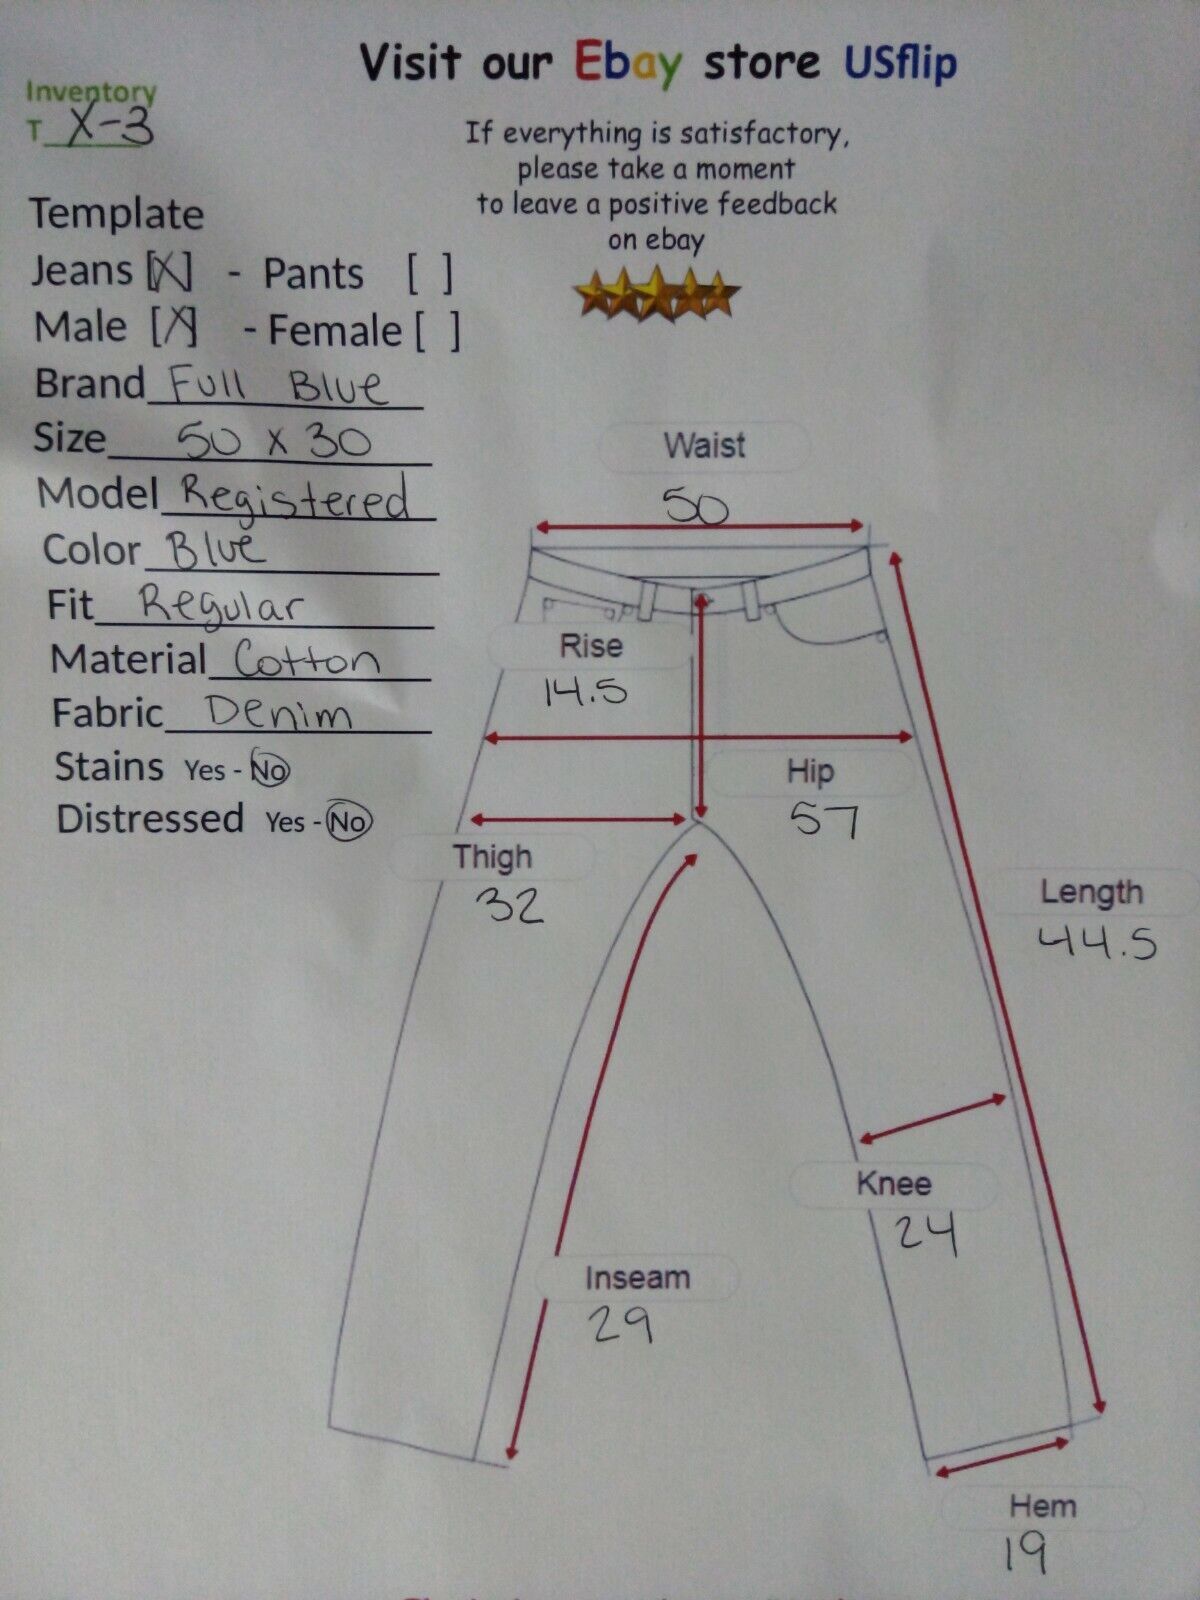 Visit our Ebay store USflip
Inventory
T X-3
If everything is satisfactory,
please take a moment
to leave a positive feedback
on ebay
Template
Jeans [X] - Pants [ ]
Male [X] - Female [ ]
Brand Full Blue
Size 50 x 30
Model Registered
Color Blue
Fit Regular
Material Cotton
Fabric Denim
Stains Yes - No
Distressed Yes - No
Waist
50
Rise
14.5
Hip
57
Thigh
32
Length
44.5
Knee
24
Inseam
29
Hem
19